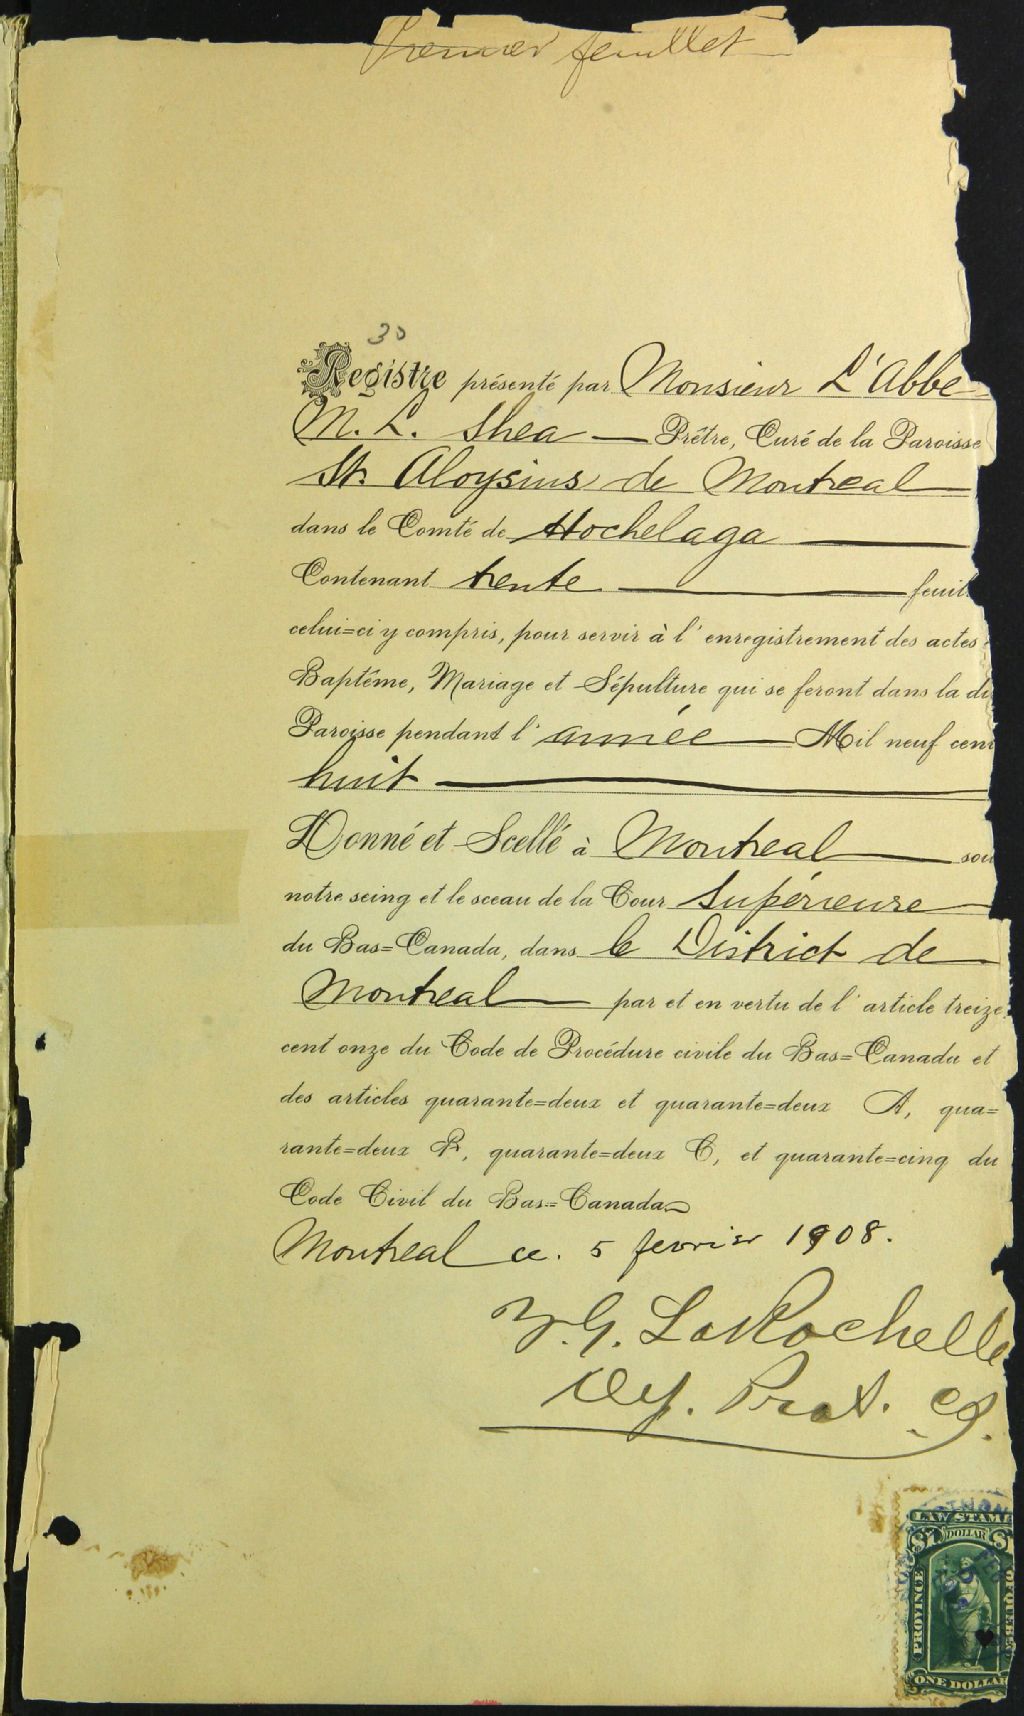 Premier feuillet
30
Registre présenté par Monsieur L'Abbe
M. L. Shea Prêtre, Curé de la Paroisse
St. Aloysius de Montreal
dans le Comté de Hochelaga
Contenant trente feuil
celui=ci y compris, pour servir à l'enregistrement des actes
Baptême, Mariage et Sépulture qui se feront dans la di
Paroisse pendant l'année Mil neuf cent
huit
Donné et Scellé à Montreal sou
notre seing et le sceau de la Cour Supérieure
du Bas=Canada, dans le District de
Montreal par et en vertu de l'article treize
cent onze du Code de Procédure civile du Bas=Canada et
des articles quarante=deux et quarante=deux A, qua=
rante=deux B, quarante=deux C, et quarante=cinq du
Code Civil du Bas=Canada
Montreal ce. 5 fevrier 1908.
LaRochelle
Dep. Prot. C.S.
LAW STAMP
$1 DOLLAR $
PROVINCE OF QUEBEC
ONE DOLLAR